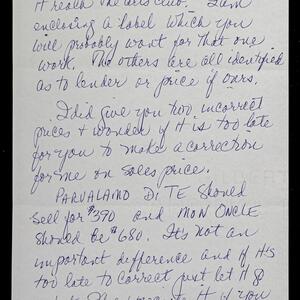 it reach the Arts Club. I am
enclosing a label which you
will probably want for that one
work. The others are all identified
as to lender or price if ours.
I did give you two incorrect
prices & wonder if it is too late
for you to make a correction
for me on sales price.
PARVALAMO DI TE should
sell for $390 and MON ONCLE
should be $680. It's not an
important difference and if it's
too late to correct just let it go
it if you